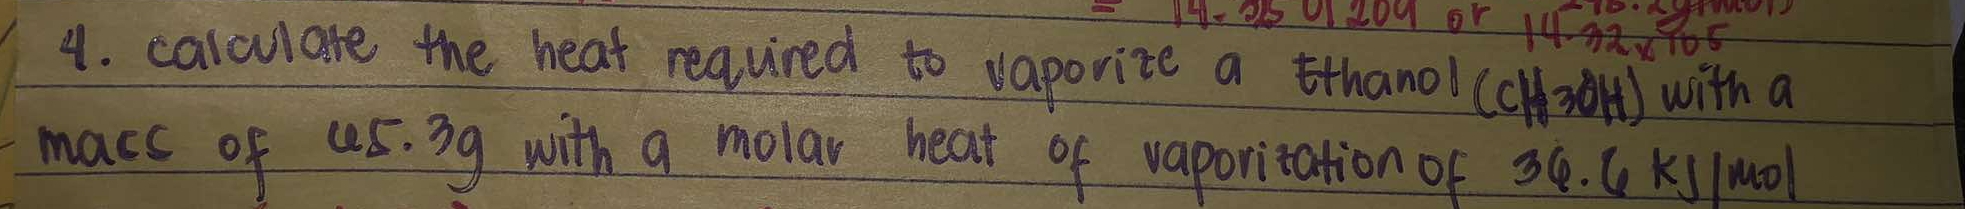 = 14.325 01204 or
14.32 x 105
4. calculate the heat required to vaporize a Ethanol (CH3OH) with a
mass of 45.3g with a molar heat of vaporization of 36.6 KJ/mol